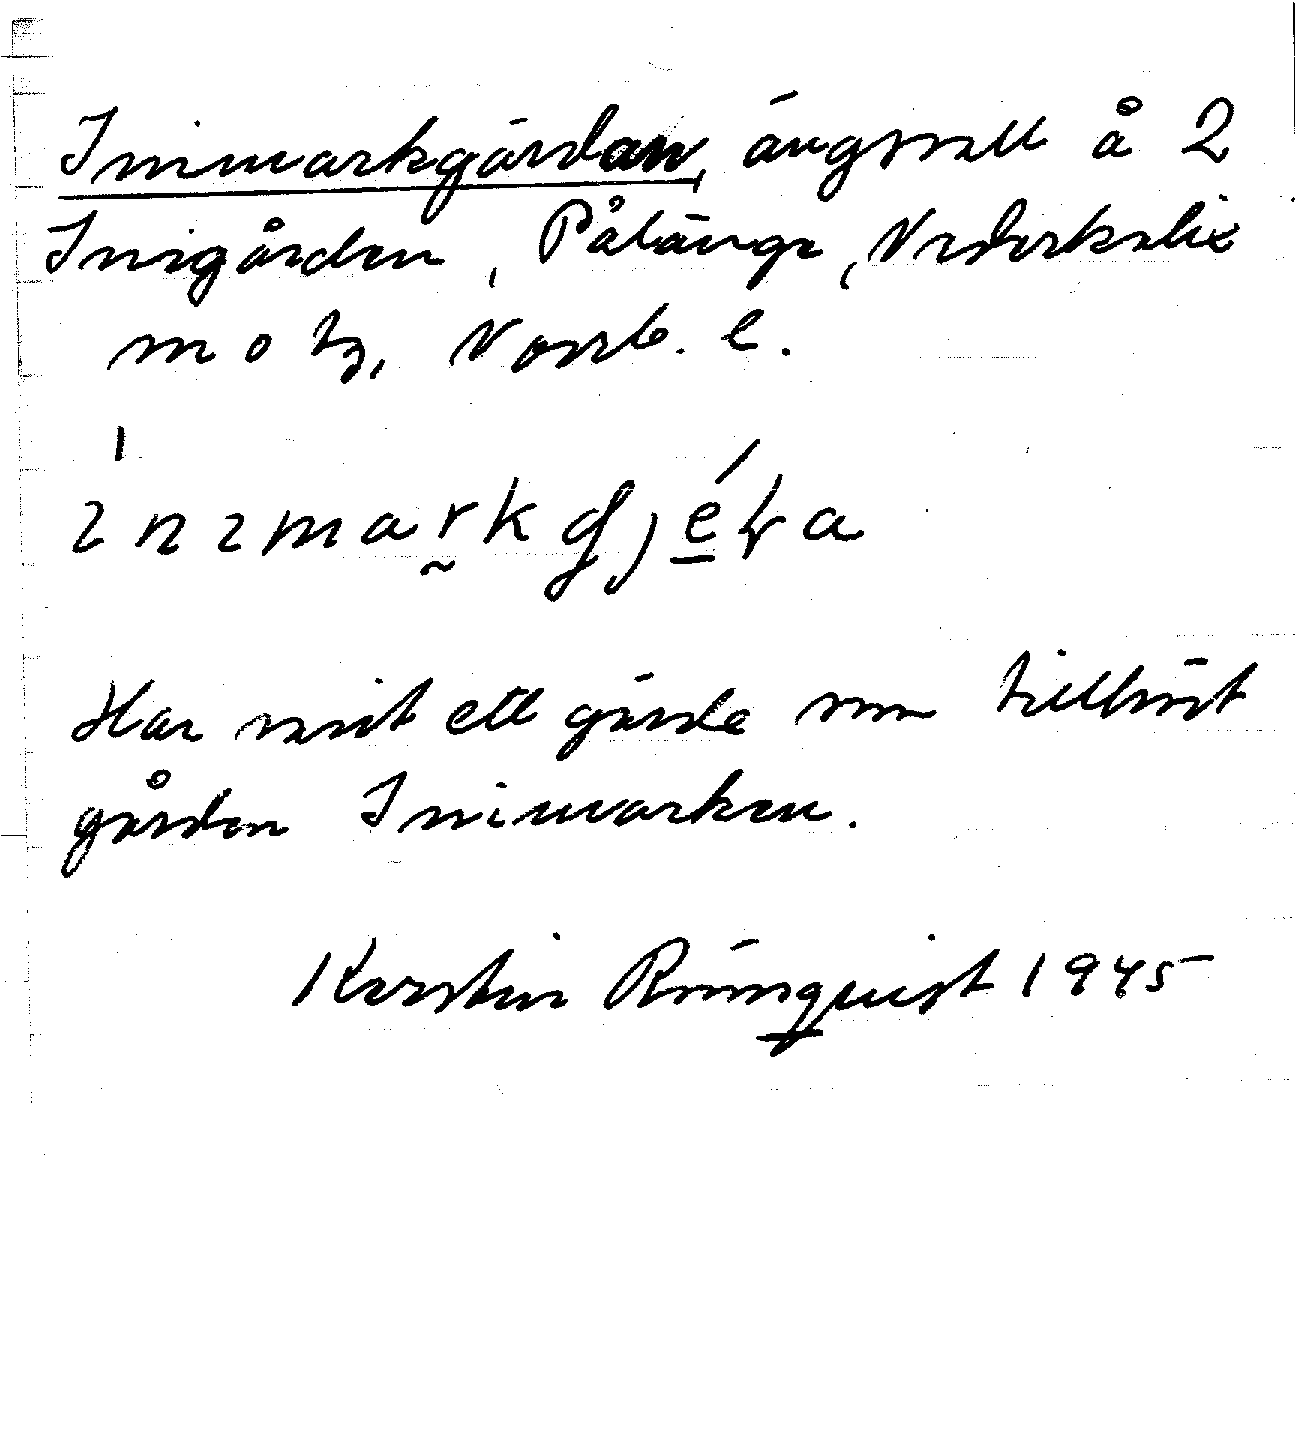 Inimarkgärdan, ängsvall å 2
Inigården, Pålänge, Nederkalix
sn o tg, Norrb. l.
Har varit ett gärde som tillhört
gården Inimarken.
Kerstin Rönnquist 1945